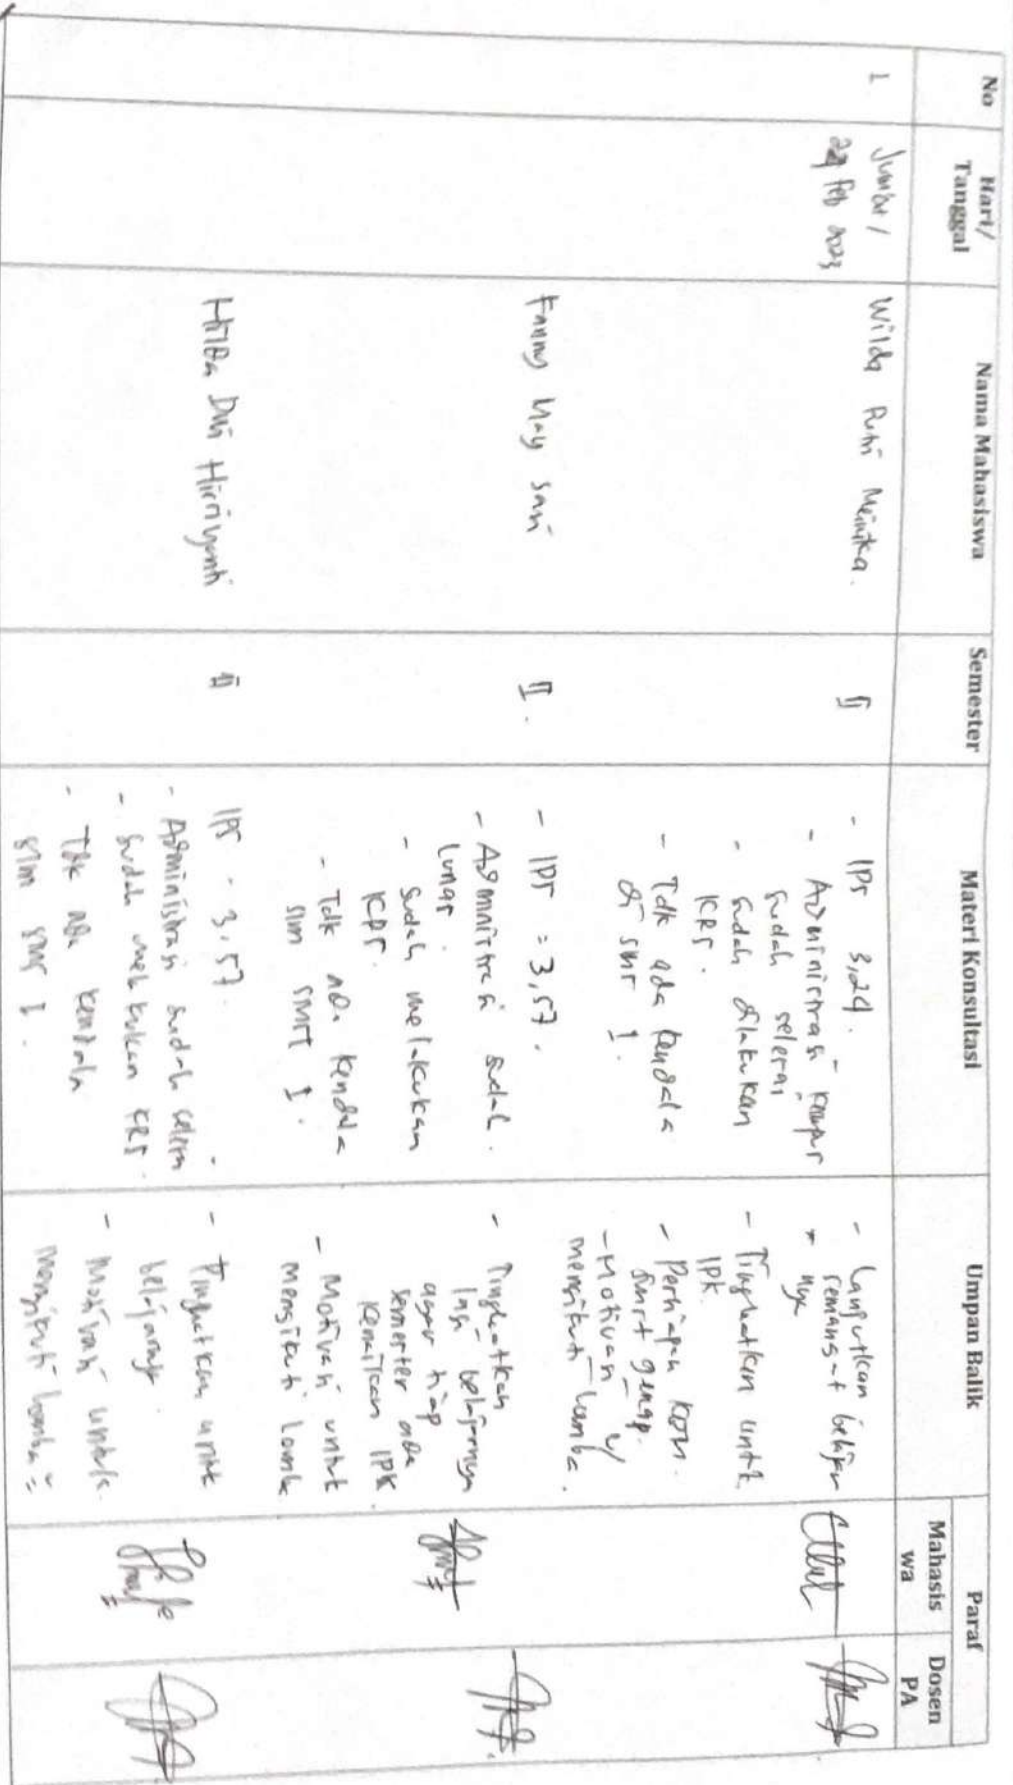 No
Hari/
Tanggal
Nama Mahasiswa
Semester
Materi Konsultasi
Umpan Balik
Paraf
Mahasis
wa
Dosen
PA
1
Jumat /
Feb 2023
Wilda Putri Meinika.
II
- IPS 3,24.
- Administrasi
sudah selesai
- sudah dilakukan
KRS.
- Tdk ada kendala
di smt I.
- Lanjutkan
semangat belajar
nya
- Tingkatkan untk
IPK.
- Persiapan
smt genap.
- Motivasi u/
mengikuti lomba.
Fanny May Sari
II.
- IPS = 3,57.
- Administrasi sudah
lunas.
- Sudah melakukan
KRS.
- Tdk ada kendala
slm SMT I.
- Tingkatkan
lagi belajarnya
agar tiap
semester ada
kenaikan IPK.
- Motivasi untuk
mengikuti Lomba
Hilda Dwi Hirriyanti
II
IPS - 3,57.
- Administrasi sudah selesai
- Sudah melakukan KRS.
- Tdk ada kendala
slm smt I.
- Tingkatkan untuk
belajarnya.
- Motivasi untuk
mengikuti lomba